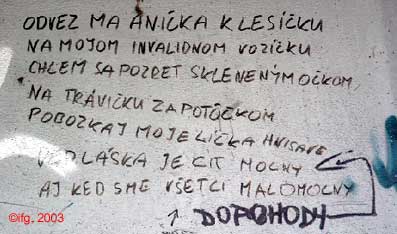 ODVEZ MA ANIČKA K LESÍČKU
NA MOJOM INVALIDNOM VOZÍČKU
CHLEM SA POZRET SKLENENÝM OČKOM
NA TRÁVIČKU ZA POTÔČKOM
POBOZKAJ MOJE LÍČKA HNISAVÉ
VEĎ LÁSKA JE CIT MOCNY
AJ KEĎ SME VŠETCI MALOMOCNY
↑ DOPOHODY
©ifg. 2003